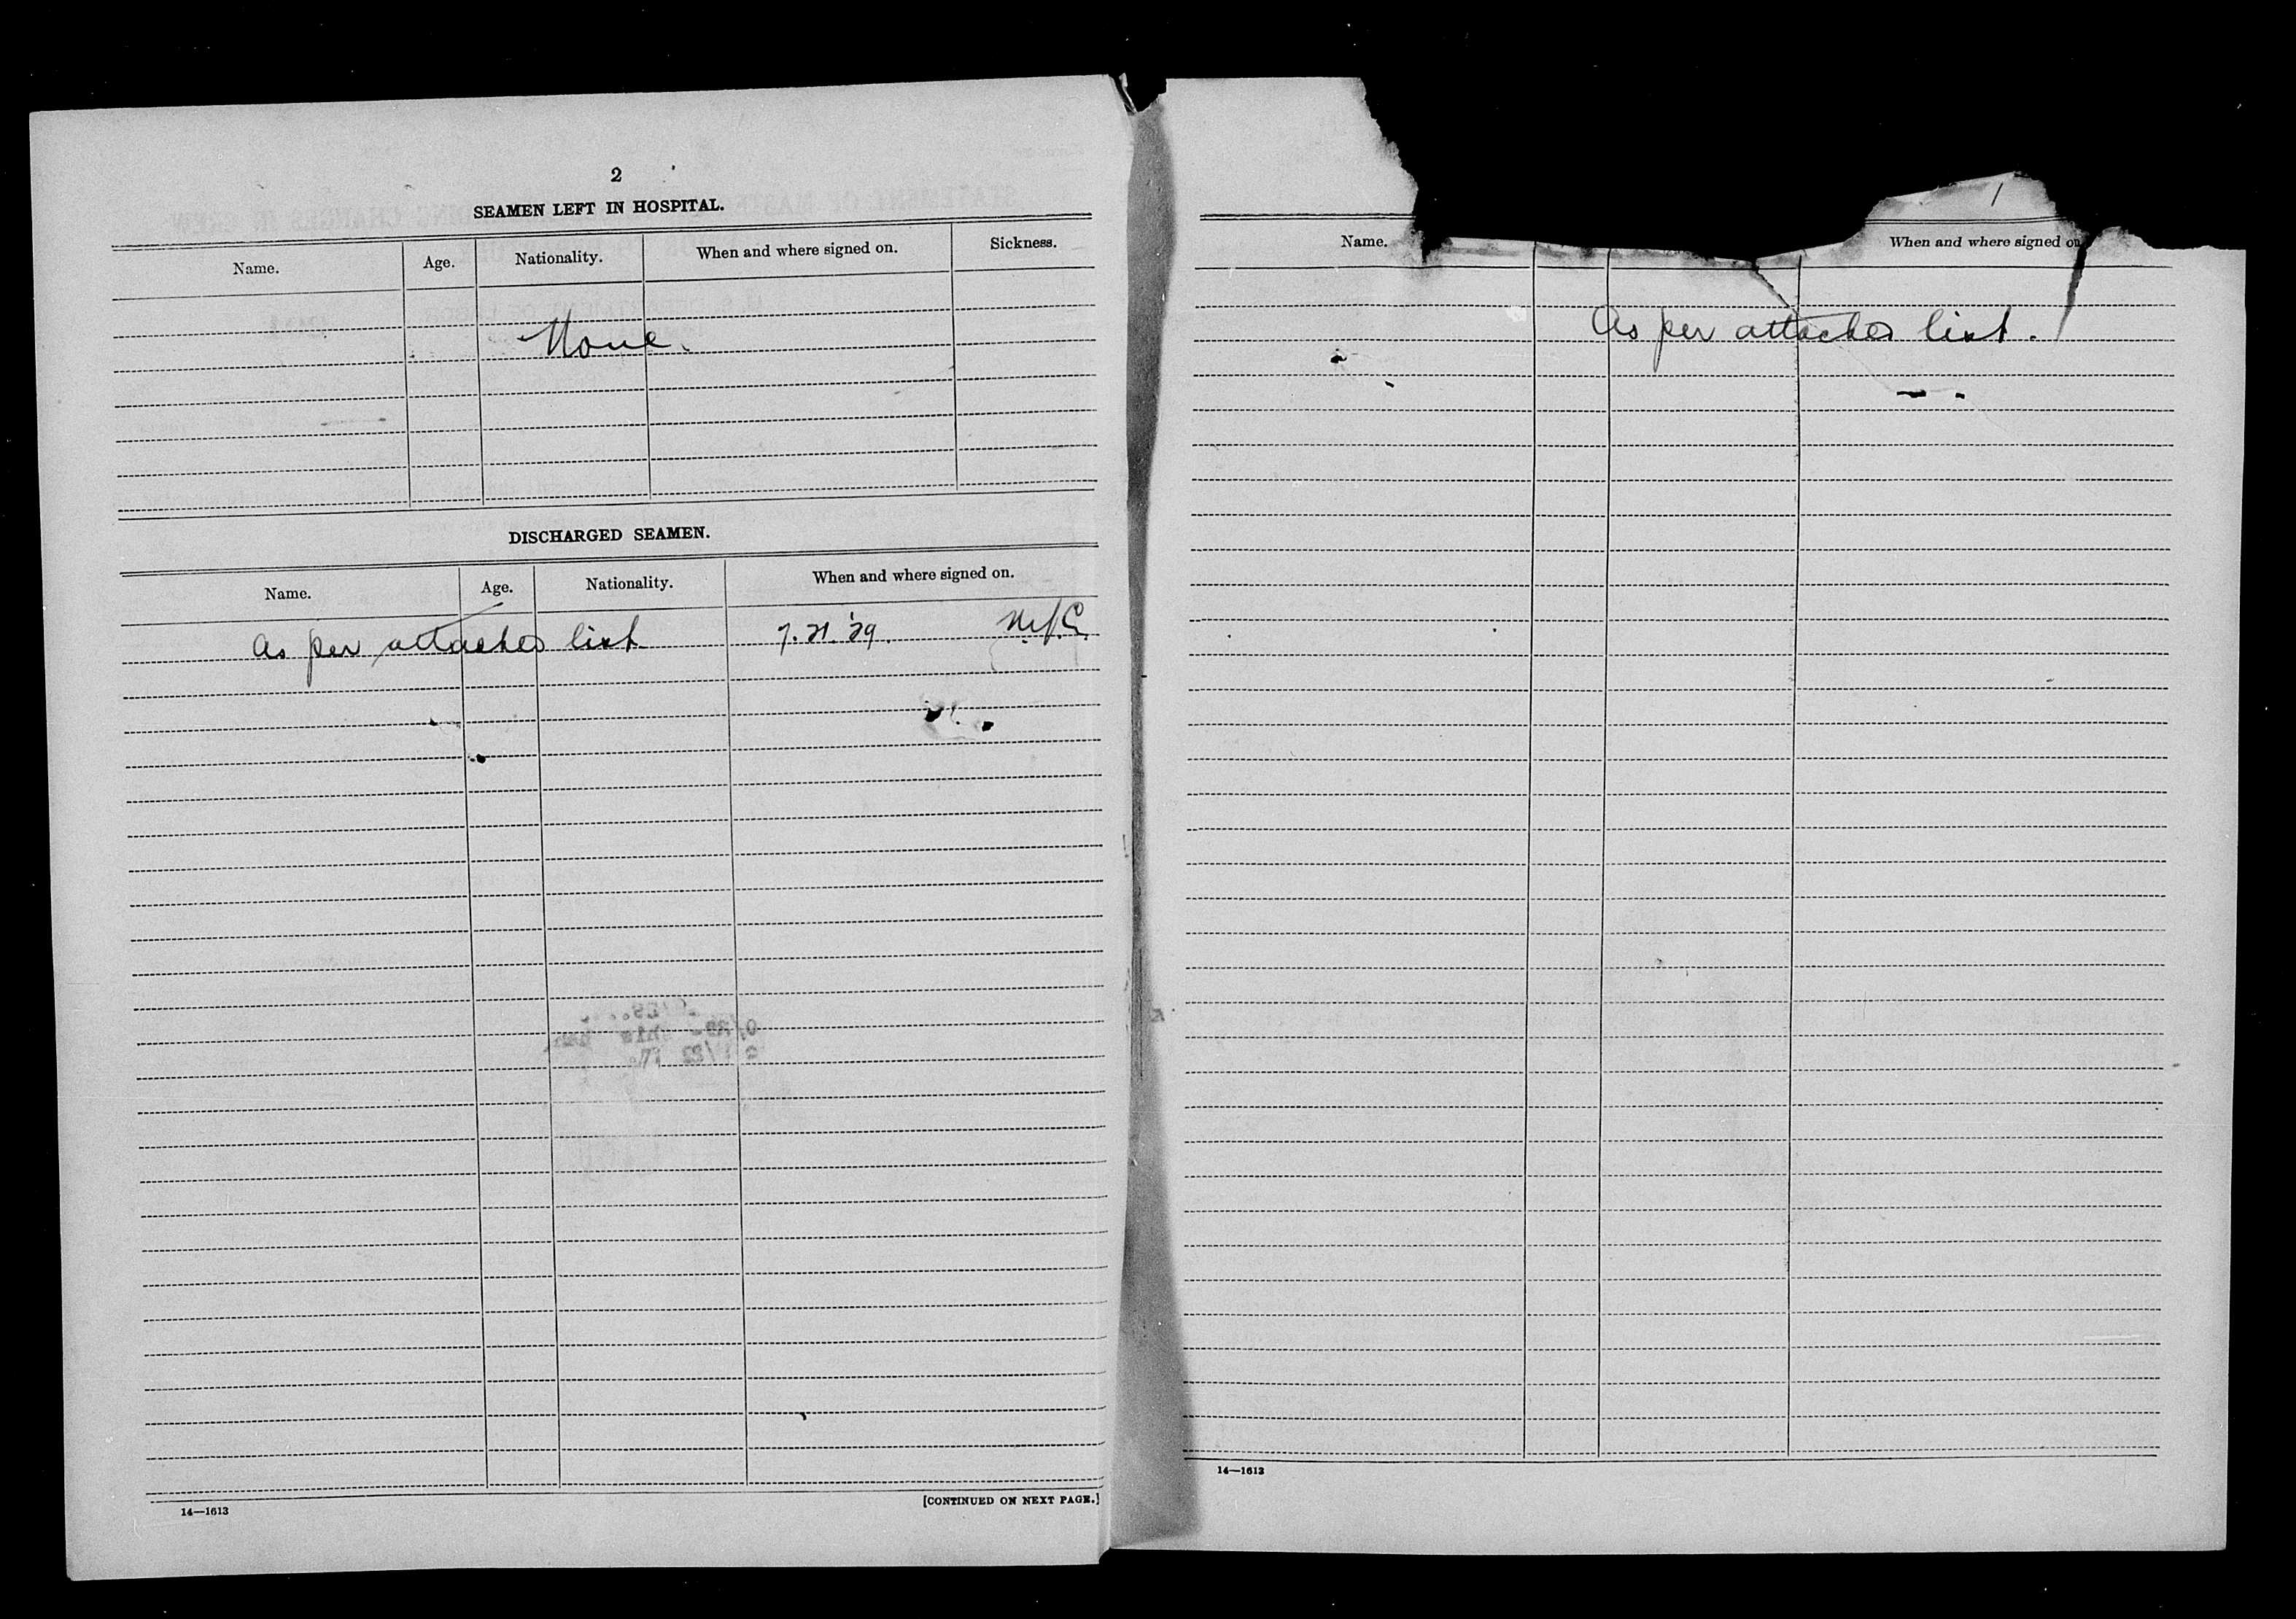 2
SEAMEN LEFT IN HOSPITAL.
Name. Age. Nationality. When and where signed on. Sickness.
None.
DISCHARGED SEAMEN.
Name. Age. Nationality. When and where signed on.
As per attached list. 7.21.'29.
14—1613
[CONTINUED ON NEXT PAGE.]
Name. When and where signed on
As per attached list.
14—1613